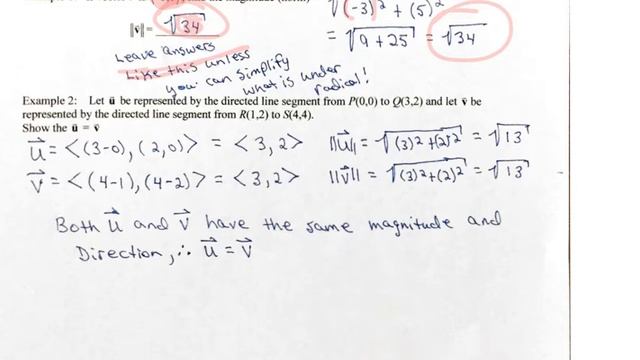 the magnitude (norm)
√(-3)² + (5)²
‖v̄‖ = √34
= √9 + 25 = √34
Leave answers
Like this unless
you can simplify
what is under
radical!
Example 2: Let ū be represented by the directed line segment from P(0,0) to Q(3,2) and let v̄ be
represented by the directed line segment from R(1,2) to S(4,4).
Show the ū = v̄
u⃗ = <(3-0), (2,0)> = <3,2> ||u⃗|| = √(3)²+(2)² = √13
v⃗ = <(4-1), (4-2)> = <3,2> ||v⃗|| = √(3)²+(2)² = √13
Both u⃗ and v⃗ have the same magnitude and
Direction, ∴ u⃗ = v⃗